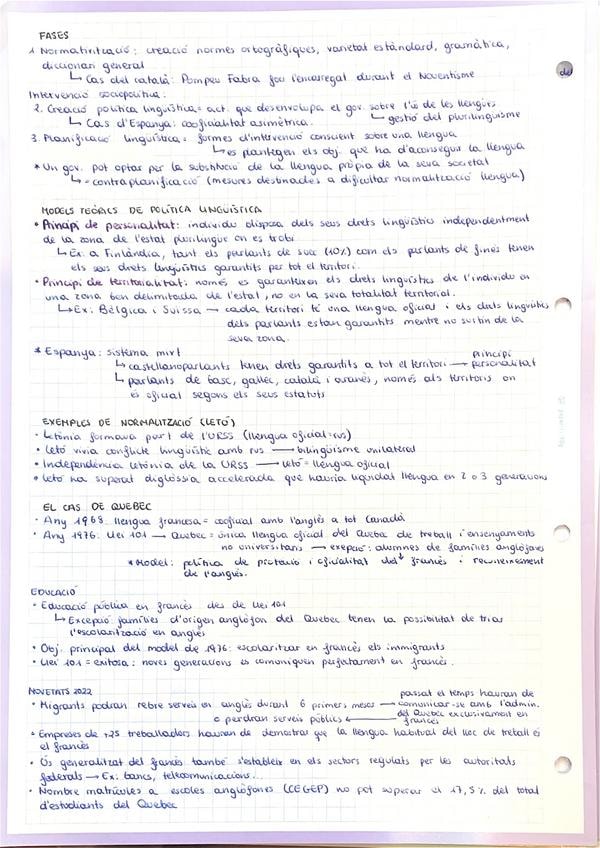 FASES
1. Normativització: creació normes ortogràfiques, varietat estàndard, gramàtica,
diccionari general
↳ Cas del català: Pompeu Fabra fou l'encarregat durant el Noucentisme
Intervenció sociopolítica:
2. Creació política lingüística = act. que desenvolupa el gov. sobre l'ús de les llengües
↳ Cas d'Espanya: cooficialitat asimètrica. ↳ gestió del plurilingüisme
3. Planificació lingüística = formes d'intervenció conscient sobre una llengua
↳ es plantegen els obj. que ha d'aconseguir la llengua
* Un gov. pot optar per la substitució de la llengua pròpia de la seva societat
↳ = contraplanificació (mesures destinades a dificultar normalització llengua)
MODELS TEÒRICS DE POLÍTICA LINGÜÍSTICA
• Principi de personalitat: individu disposa dels seus drets lingüístics independentment
de la zona de l'estat plurilingüe on es trobi
↳ Ex: a Finlàndia, tant els parlants de suec (10%) com els parlants de finès tenen
els seus drets lingüístics garantits per tot el territori.
• Principi de territorialitat: només es garanteixen els drets lingüístics de l'individu en
una zona ben delimitada de l'estat, no en la seva totalitat territorial.
↳ Ex: Bèlgica i Suïssa → cada territori té una llengua oficial i els drets lingüístics
dels parlants estan garantits mentre no surtin de la
seva zona.
* Espanya: sistema mixt
↳ castellanoparlants tenen drets garantits a tot el territori → principi personalitat
↳ parlants de basc, gallec, català i aranès, només als territoris on
és oficial segons els seus estatuts
EXEMPLES DE NORMALITZACIÓ (LETÓ)
• Letònia formava part de l'URSS (llengua oficial = rus)
• Letó vivia conflicte lingüístic amb rus → bilingüisme unilateral
• Independència Letònia de la URSS → letó = llengua oficial
• Letó ha superat diglòssia accelerada que hauria liquidat llengua en 2 o 3 generacions
EL CAS DE QUEBEC
• Any 1968: llengua francesa = cooficial amb l'anglès a tot Canadà
• Any 1976: Llei 101 → Quebec = única llengua oficial del Quebec de treball i ensenyaments
no universitaris → exepció: alumnes de famílies anglòfones
* Model: política de protecció i oficialitat del francès i reconeixement
de l'anglès.
EDUCACIÓ
• Educació pública en francès des de Llei 101
↳ Excepció famílies d'origen anglòfon del Quebec tenen la possibilitat de triar
l'escolarització en anglès
• Obj. principal del model de 1976: escolaritzar en francès els immigrants
• Llei 101 = exitosa: noves generacions es comuniquen perfectament en francès.
NOVETATS 2022
• Migrants podran rebre serveis en anglès durant 6 primers mesos → passat el temps hauran de
comunicar-se amb l'admin.
del Quebec exclusivament en
francès
o perdran serveis públics ←
• Empreses de +25 treballadors hauran de demostrar que la llengua habitual del lloc de treball és
el francès
• Ús generalitzat del francès també s'estableix en els sectors regulats per les autoritats
federals → Ex: bancs, telecomunicacions...
• Nombre matrícules a escoles anglòfones (CEGEP) no pot superar el 17,5% del total
d'estudiants del Quebec